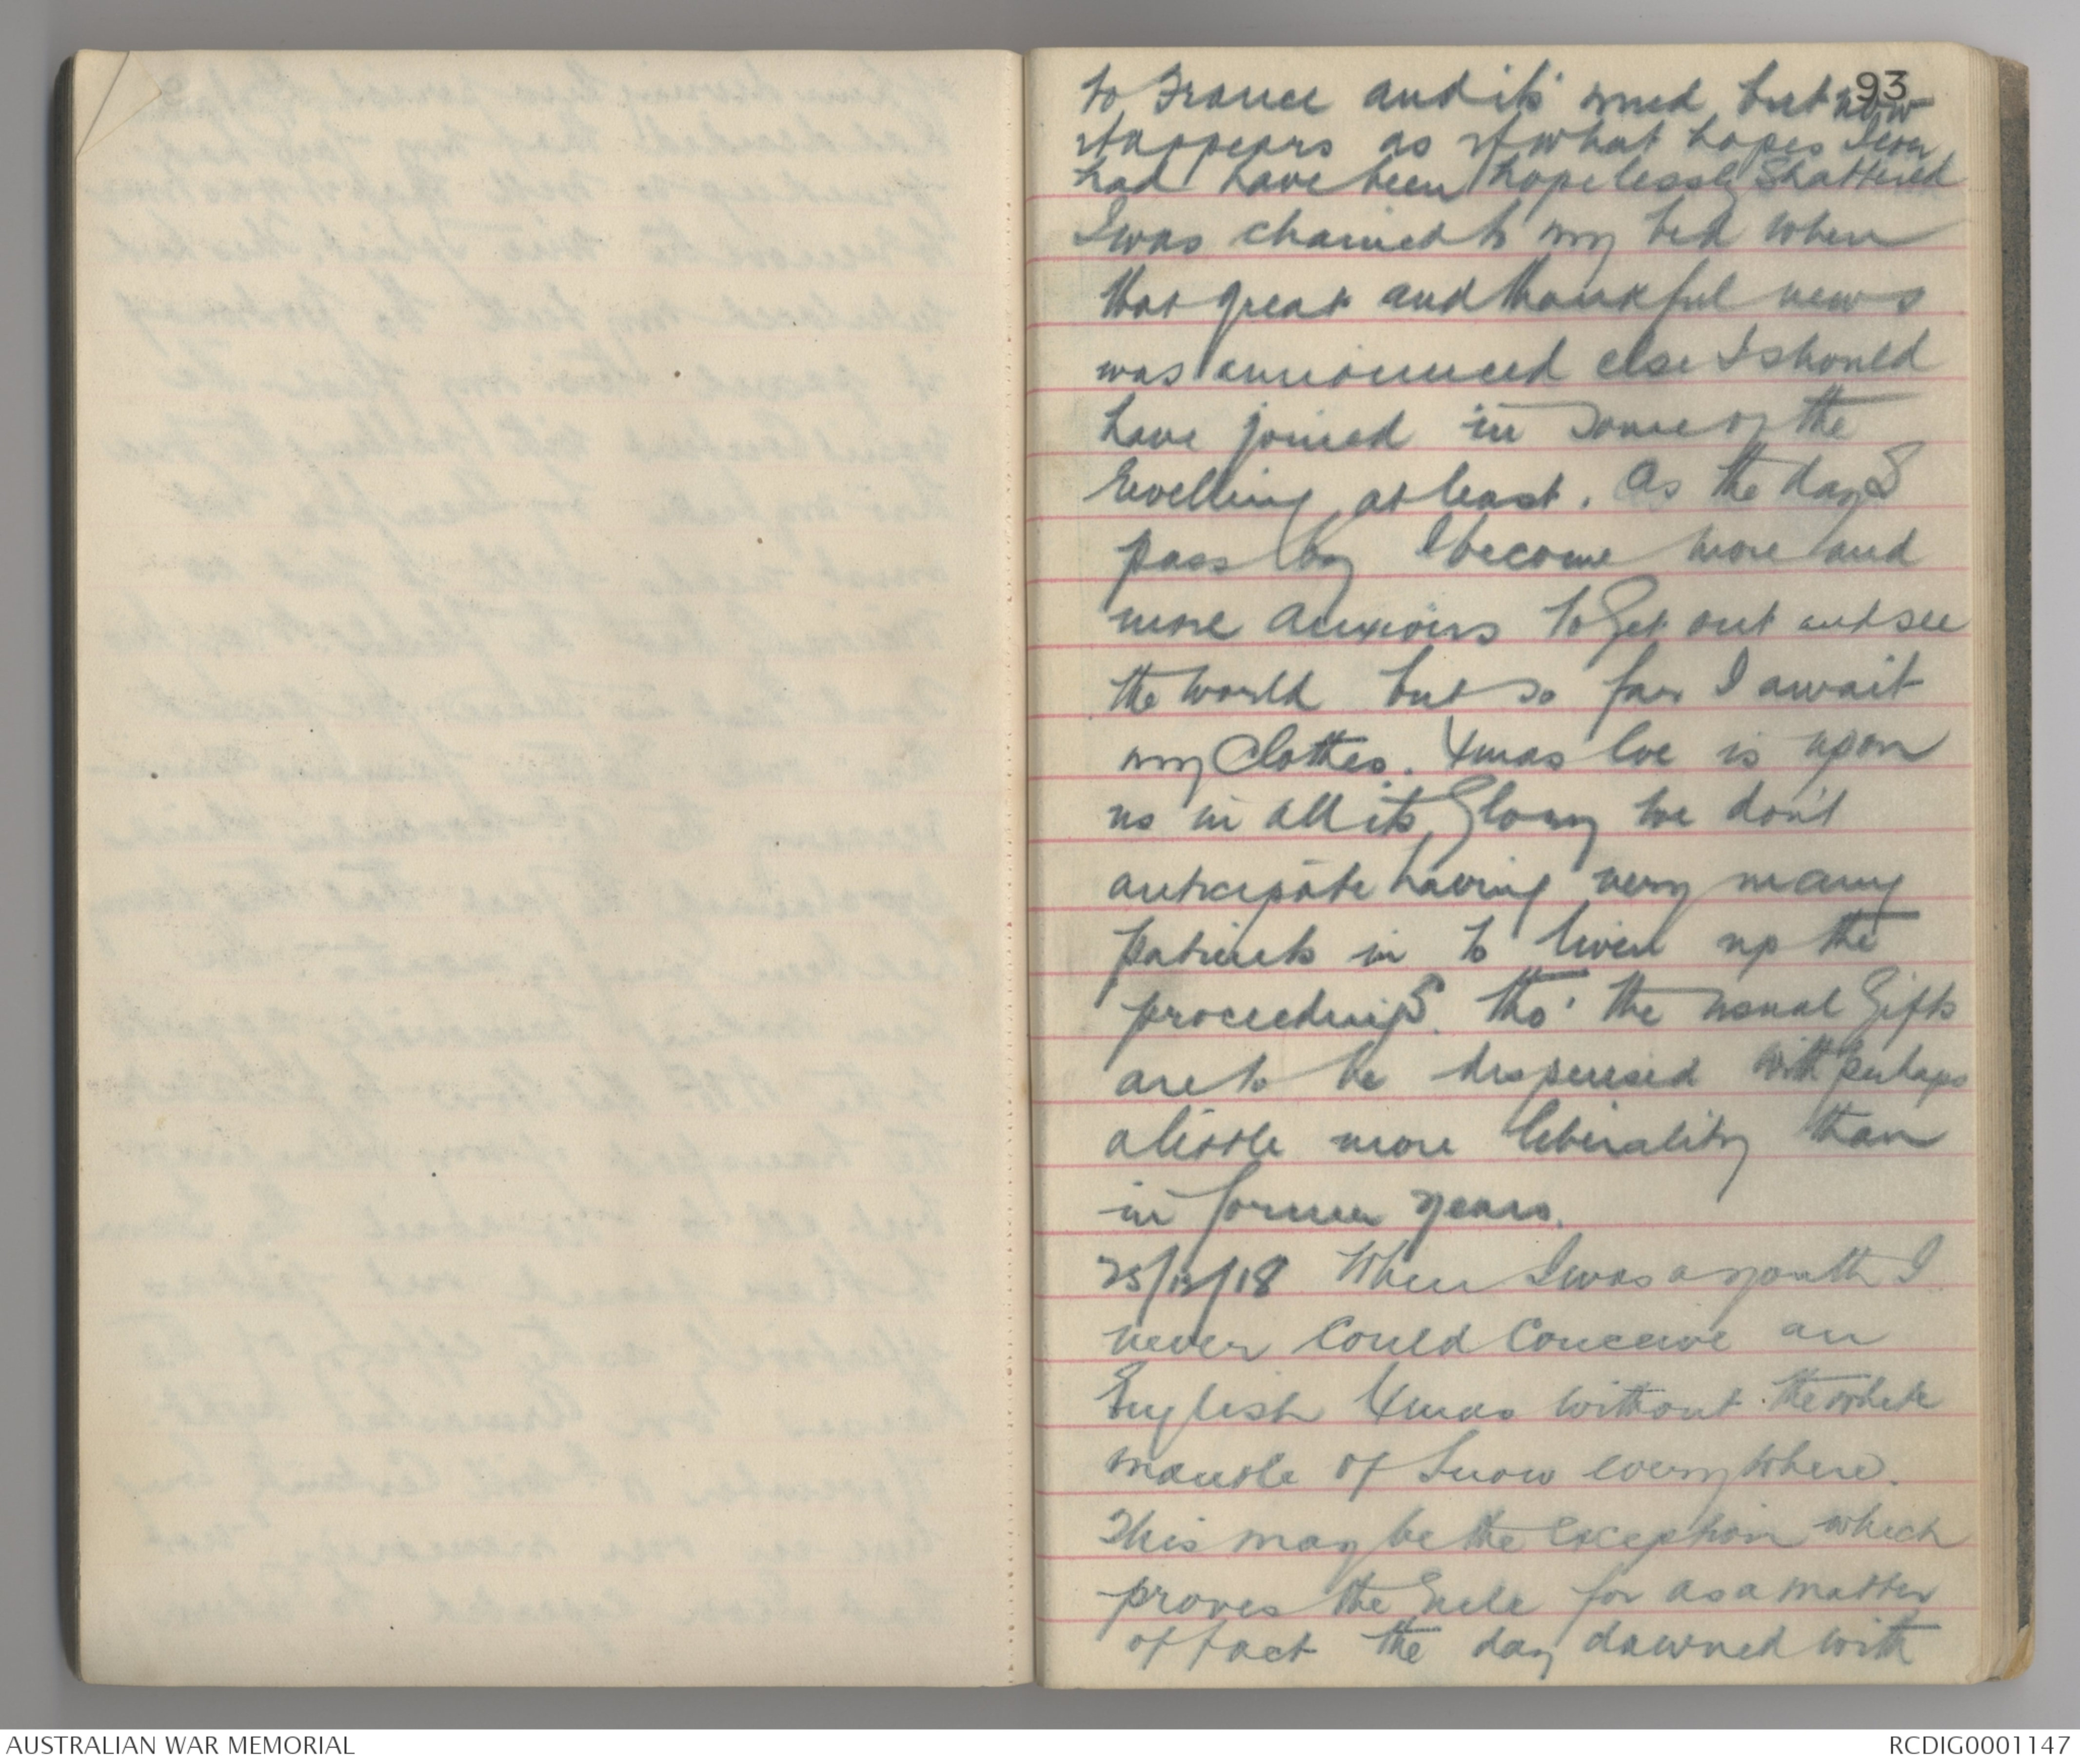 93
to France and its' mud, but now
it appears as if what hopes I ever
had have been hopelessly Shattered
I was chained to my bed when
that great and thankful news
was announced else I should
have joined in some of the
revelling at least. As the dayS
pass by I become more and
more anxious to Get out and see
the world but so far I await
my Clothes. Xmas Eve is upon
us in all its Glory we don't
anticipate having very many
patients in to liven up the
proceedingS. tho' the usual Gifts
are to be dispensed with perhaps
a little more liberality than
in former years.
25/12/18 When I was a youth I
never Could Conceive an
English Xmas without the white
mantle of Snow everywhere.
This may be the exception which
proves the Rule for as a matter
of fact the day dawned with
AUSTRALIAN WAR MEMORIAL
RCDIG0001147